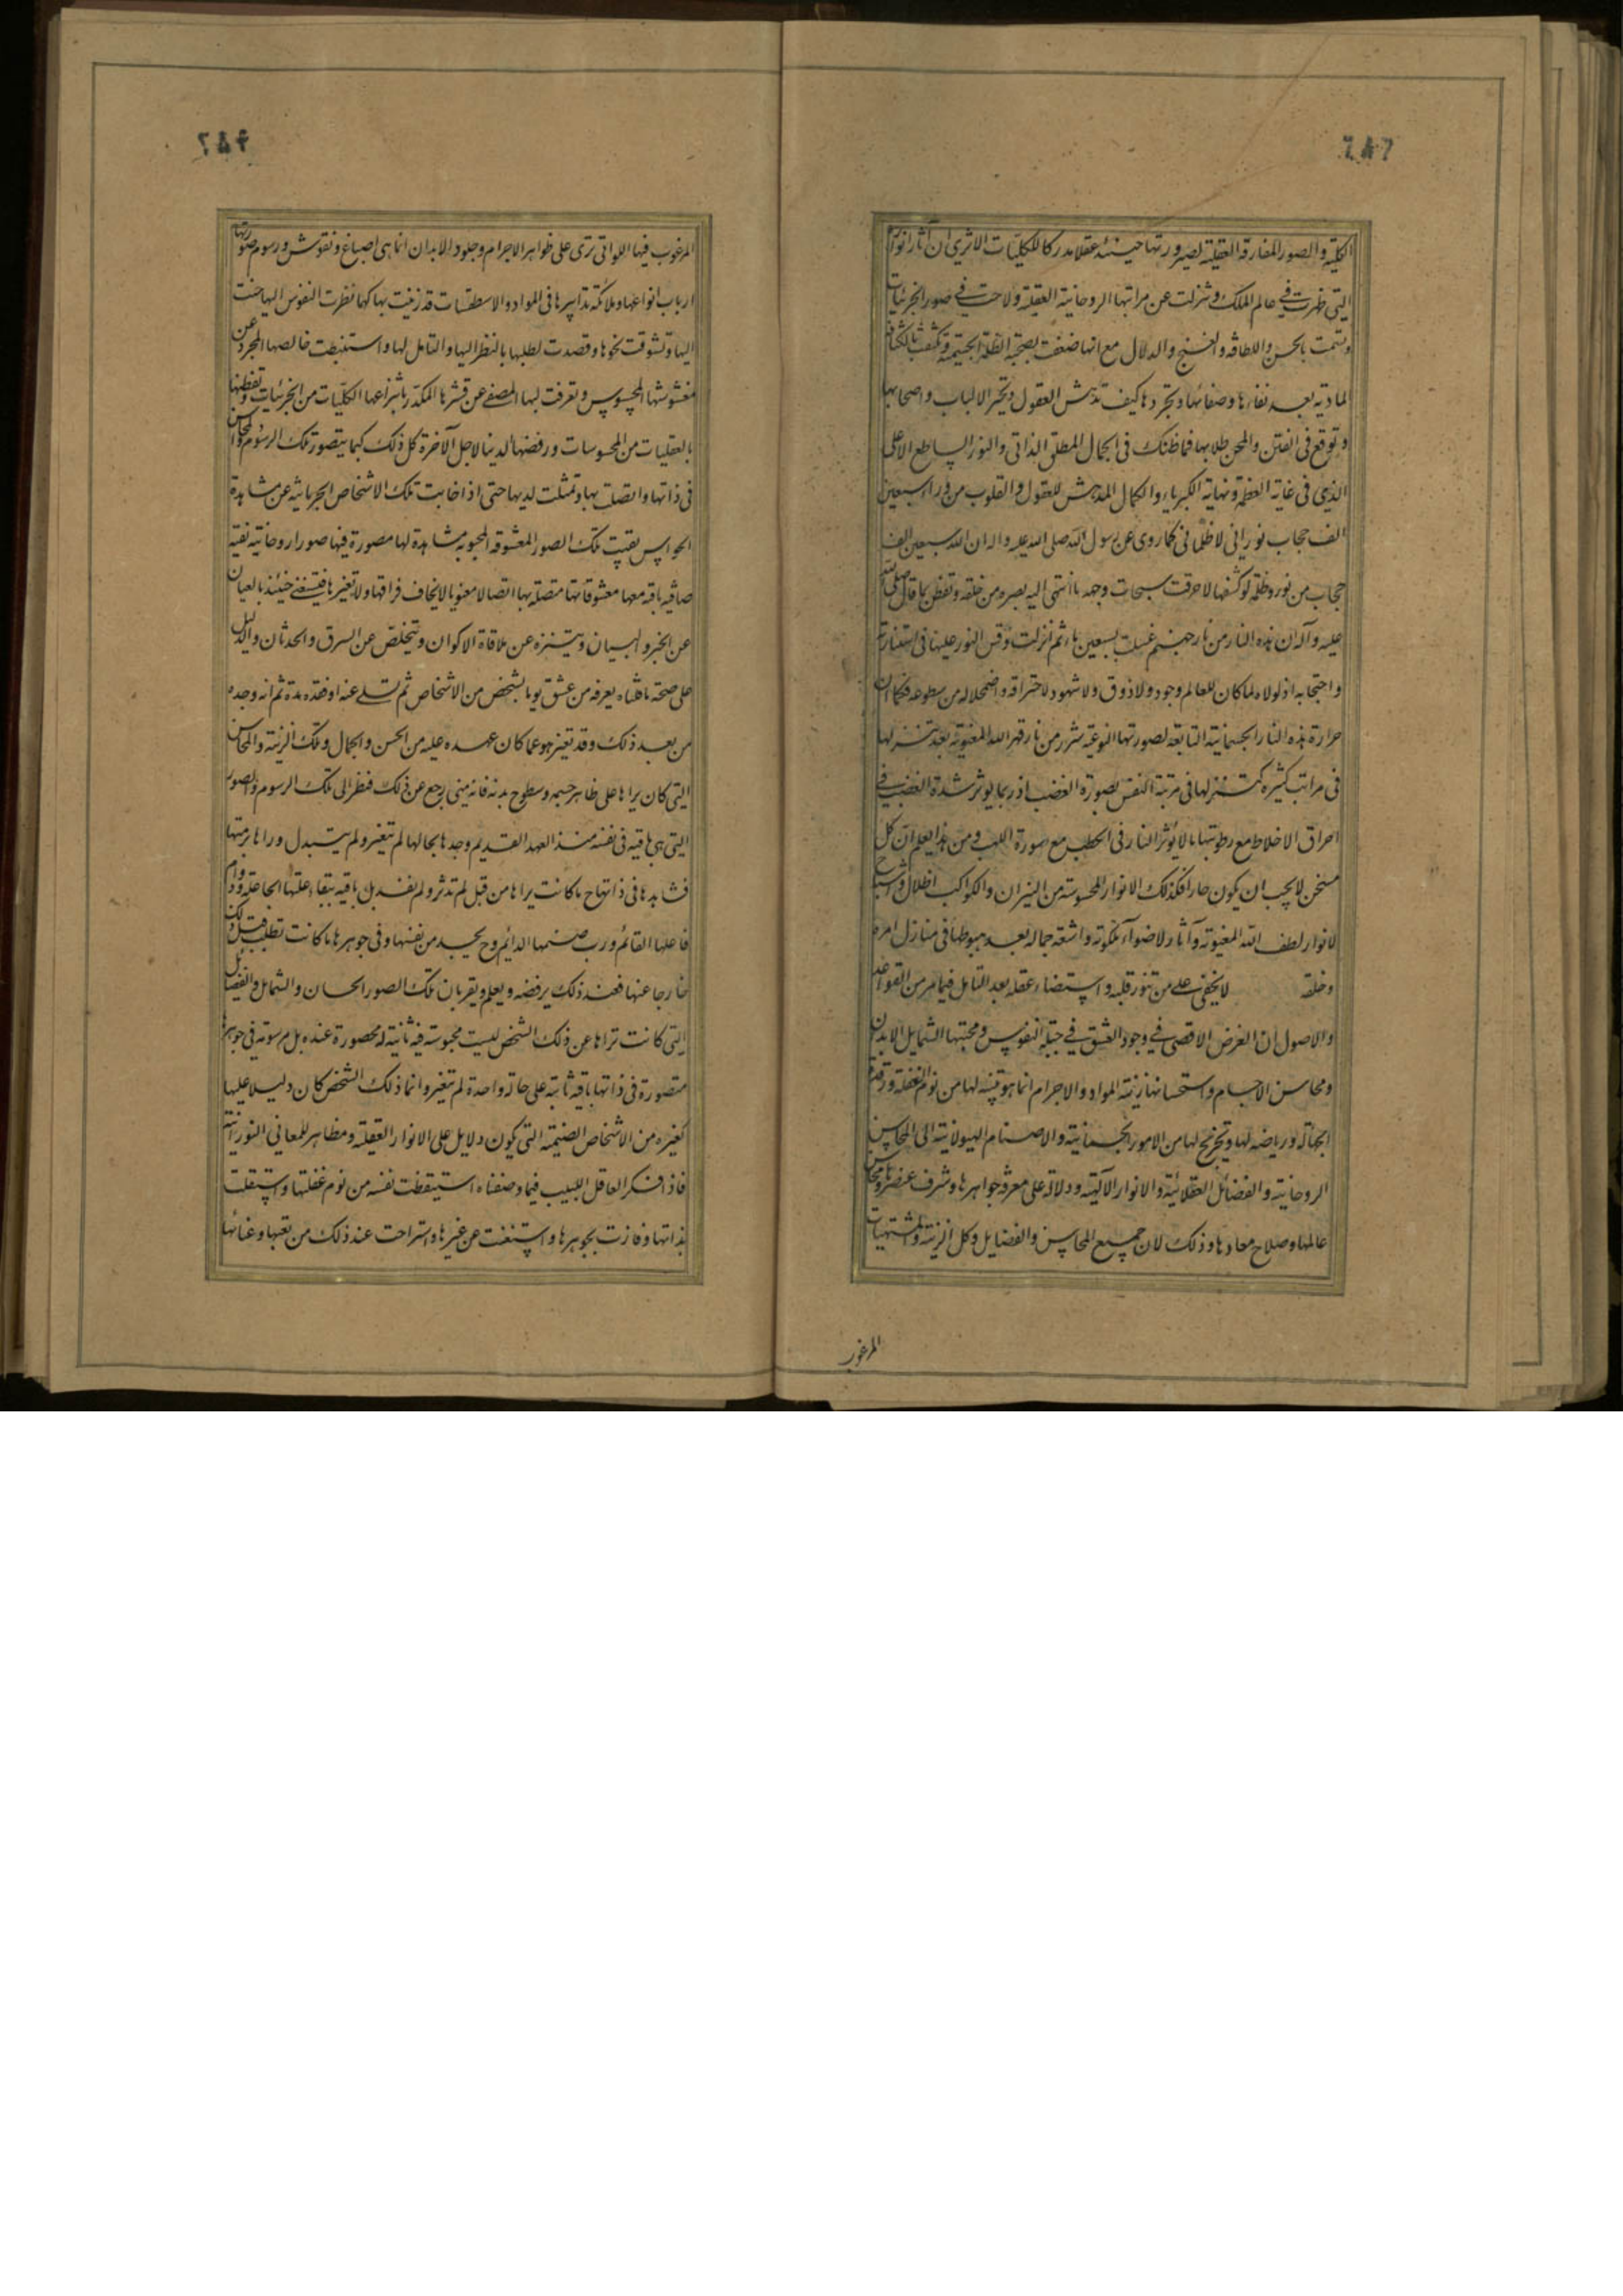 الكلية والصور المفارقة العقلية لصيرورتها حينئذ عقلا مدركا للكليات الا ترى ان آثار انوار
التي ظهرت في عالم الملك وتنزلت عن مراتبها الروحانية العقلية ولاحت في صور الجزئيات
وتسمت بالحسن واللطافة والغنج والدلال مع انها ضعفت بصحبة الظلة الجسمية وتكثفت بالكثافة
المادية بعد نقاءها وصفائها وتجردها كيف تدهش العقول وتحير الالباب واصحابها
وتوقع في الفتن والمحن طلابها فما ظنك في الجمال المطلق الذاتي والنور الساطع الاعلى
الذي في غاية العظمة ونهاية الكبرياء والكمال المدهش للعقول والقلوب من وراء سبعين
الف حجاب نوراني لا ظلماني كما روى عن رسول الله صلى الله عليه واله ان لله سبعين الف
حجاب من نور وظلمة لو كشفها لاحرقت سبحات وجهه ما انتهى اليه بصره من خلقه وتفطن بما قال صلى الله
عليه وآله ان هذه النار من نار جهنم غسلت بسبعين ماء ثم انزلت وقس النور عليها في استنارته
واحتجابه اذ لولاه لما كان للعالم وجود ولا ذوق ولا شهود لاحتراقه واضمحلاله من سطوعه فكما ان
حرارة هذه النار الجسمانية التابعة لصورتها النوعية شرر من نار قهر الله المعنوية بعد تنزلها
في مراتب كثيرة كتنزلها في مرتبة النفس بصورة الغضب اذ ربما يوثر شدة الغضب في
احراق الاخلاط مع رطوبتها ما لا يؤثر النار في الحطب مع يبوسة ومن هذا يعلم ان كل
مسخن لا يجب ان يكون حارا فكذلك الانوار المحسوسة من النيران والكواكب اظلال واشباح
لانوار لطف الله المعنوية وآثار لاضواء ملكوته واشعة جماله بعد هبوطها في منازل امره
وخلقه لا يخفى على من تنور قلبه واستضاء عقله بعد التامل فيما مر من القواعد
والاصول ان الغرض الاقصى في وجود العشق في جبلة النفوس ومحبتها لشمايل الابدان
ومحاسن الاجسام واستحسانها زينة المواد والاجرام انما هو تنبيه لها من نوم الغفلة ورقدة
الجهالة ورياضة لها وتخريج لها من الامور الجسمانية والاصنام الهيولانية الى المحاسن
الروحانية والفضائل العقلانية والانوار الآلهية ودلالة على معرفة جواهرها وشرف عنصرها ومحاسن
عالمها وصلاح معادها وذلك لان جميع المحاسن والفضايل وكل الزينة والمشتهيات
المرغوب
المرغوب فيها اللواتي ترى على ظواهر الاجرام وجلود الابدان انما هي اصباغ ونقوش ورسوم صورتها
ارباب انواعها وملائكة تدابيرها في المواد والاسطقسات قد زينت بها كيما نظرت النفوس اليها حنت
اليها وتشوقت نحوها وقصدت لطلبها بالنظر اليها والتامل لها واستنبطت خالصها المجرد عن
مغشوشها المحسوس وتعرفت لبها المصفى عن قشرها المكدر بانتزاعها الكليات من الجزئيات وتفطنها
بالعقليات من المحسوسات ورفضها الدنيا لاجل الآخرة كل ذلك كيما يتصور تلك الرسوم والمحاسن
في ذاتها واتصلت بها وتمثلت لديها حتى اذا غابت تلك الاشخاص الجرمانية عن مشاهدة
الحواس بقيت تلك الصور المعشوقة المحبوبة مشاهدة لها مصورة فيها صورا روحانية نقية
صافية باقية معها معشوقاتها متصلة بها اتصالا معنويا لا يخاف فراقها ولا تغيرها فيستغنى حينئذ بالعيان
عن الخبر والبيان ويتنزه عن ملاقاة الاكوان ويتخلص عن السرق والحدثان والدليل
على صحة ما قلناه يعرفه من عشق يوما بشخص من الاشخاص ثم تسلى عنه او فقده مدة ثم انه وجده
من بعد ذلك وقد تغير هو عما كان عهده عليه من الحسن والجمال وتلك الزينة والمحاسن
التي كان يراها على ظاهر جسمه وسطوح بدنه فانه متى رجع عن ذلك فنظر الى تلك الرسوم والصور
التي هي باقية في نفسه منذ العهد القديم وجدها بحالها لم تتغير ولم يتبدل وراها برمتها
فشاهدها في ذاتها ح ما كانت يراها من قبل لم تدثر ولم يفسد بل باقية ببقاء علتها الجاعلة ودوام
فاعلها القائم ورب صنمها الدائم وح يجد من نفسها وفي جوهرها ما كانت تطلب قبل ذلك
خارجا عنها فعند ذلك يرفضه ويعلم ويقر بان تلك الصور الحسان والشمايل والفضايل
التي كانت تراها عن ذلك الشخص ليست محبوسة فيه ثانية له محصورة عنده بل مرسومة في جوهرها
متصورة في ذاتها باقية ثابتة على حالة واحدة لم تتغير وانما ذلك الشخص كان دليلا عليها
كغيره من الاشخاص الصنمية التي يكون دلايل على الانوار العقلية ومظاهر للمعاني النورانية
فاذا فكر العاقل اللبيب فيما وصفناه استيقظت نفسه من نوم غفلتها واستقلت
بذاتها وفازت بجوهرها واستغنت عن غيرها واستراحت عند ذلك من تعبها وعنائها